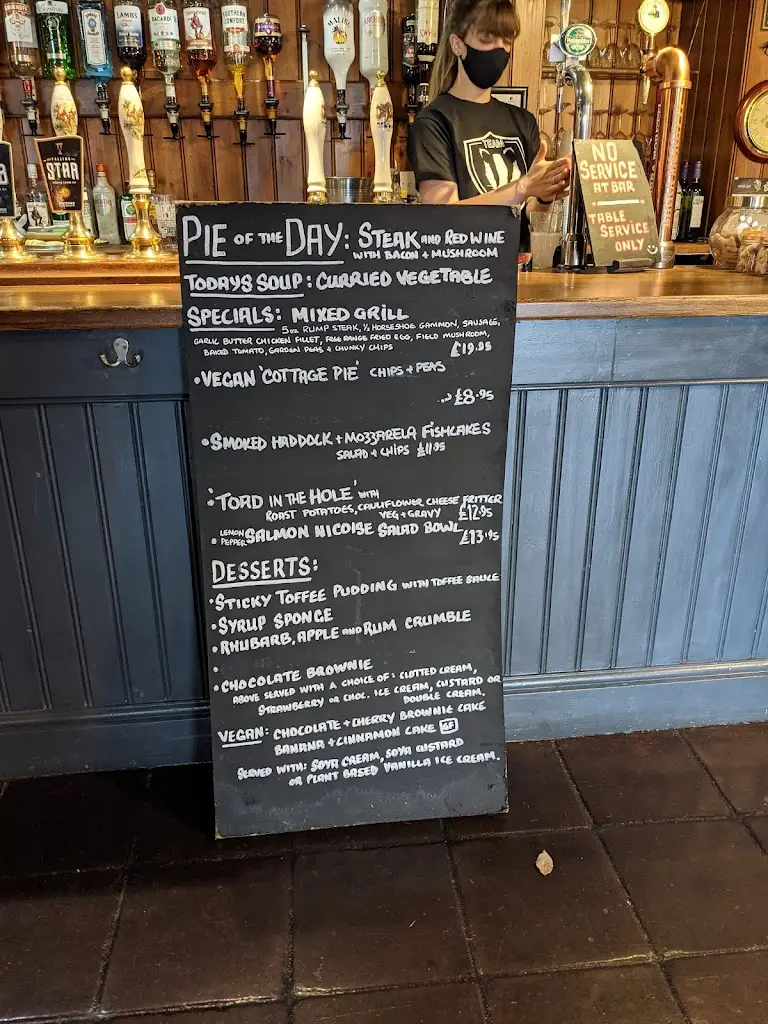 LAMB'S
BACARDI
SOUTHERN COMFORT
MALIBU
STAR
TEAM
NO
SERVICE
AT BAR
TABLE
SERVICE
ONLY
PIE OF THE DAY: STEAK AND RED WINE
WITH BACON + MUSHROOM
TODAYS SOUP: CURRIED VEGETABLE
SPECIALS: MIXED GRILL
5oz RUMP STEAK, ½ HORSESHOE GAMMON, SAUSAGE,
GARLIC BUTTER CHICKEN FILLET, FREE RANGE FRIED EGG, FIELD MUSHROOM,
BAKED TOMATO, GARDEN PEAS & CHUNKY CHIPS £19.95
• VEGAN 'COTTAGE PIE' CHIPS + PEAS
£8.95
• SMOKED HADDOCK + MOZZARELA FISHCAKES
SALAD + CHIPS £11.95
• 'TOAD IN THE HOLE' WITH
ROAST POTATOES, CAULIFLOWER CHEESE FRITTER
VEG + GRAVY £12.95
• LEMON PEPPER SALMON NICOISE SALAD BOWL £13.95
DESSERTS:
• STICKY TOFFEE PUDDING WITH TOFFEE SAUCE
• SYRUP SPONGE
• RHUBARB, APPLE AND RUM CRUMBLE
•
• CHOCOLATE BROWNIE
ABOVE SERVED WITH A CHOICE OF: CLOTTED CREAM,
STRAWBERRY OR CHOC. ICE CREAM, CUSTARD OR
DOUBLE CREAM.
VEGAN: CHOCOLATE + CHERRY BROWNIE CAKE
BANANA + CINNAMON CAKE GF
SERVED WITH: SOYA CREAM, SOYA CUSTARD
OR PLANT BASED VANILLA ICE CREAM.